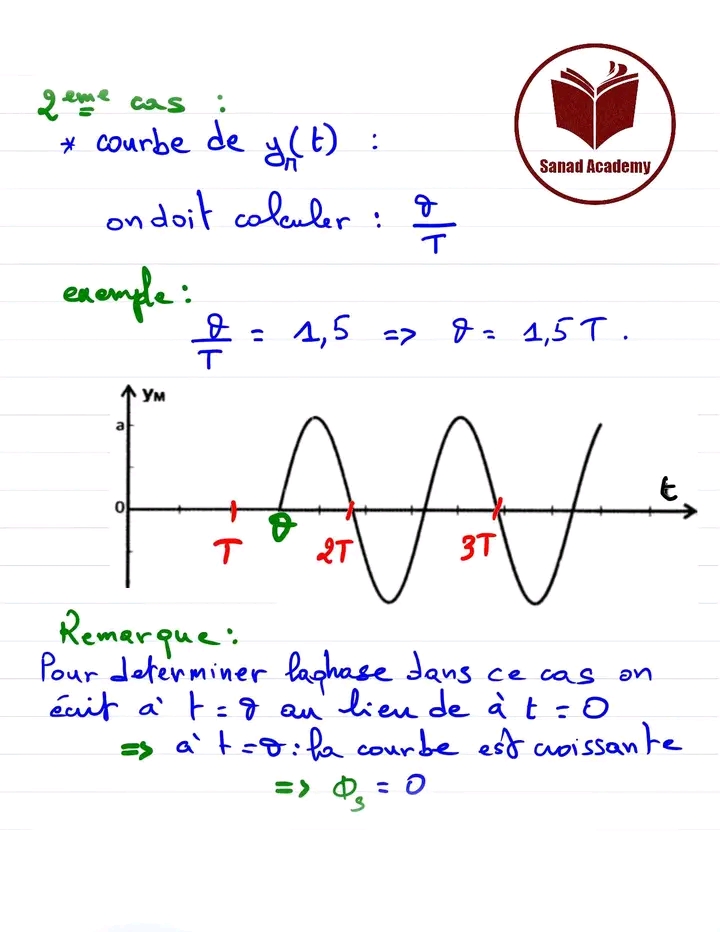 Sanad Academy
2eme cas :
* courbe de yM(t) :
on doit calculer : θ/T
exemple :
θ/T = 1,5 => θ = 1,5 T .
YM
a
0
t
T θ 2T 3T
Remarque :
Pour determiner la phase dans ce cas on
écrit à t = θ au lieu de à t = 0
=> à t = θ : la courbe est croissante
=> Φs = 0